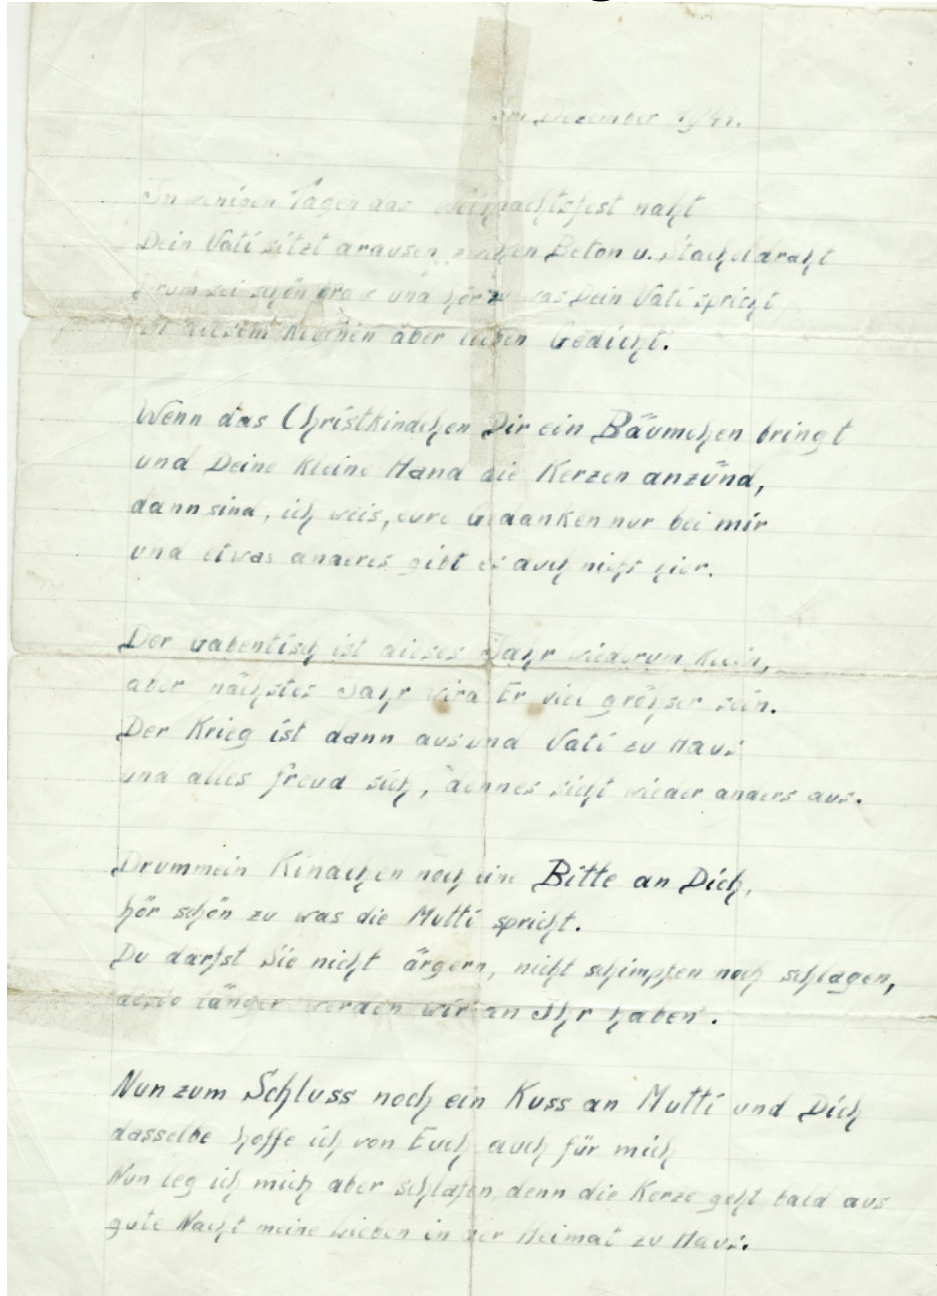 Im Dezember 194
In wenigen Tagen das Weihnachtsfest naht
Dein Vati sitzt drausen zwischen Beton u. Stacheldraht
Drum sei schön brav und hör zu was Dein Vati spricht
in diesem kleinen aber lieben Gedicht.
Wenn das Christkindchen Dir ein Bäumchen bringt
und Deine kleine Hand die Kerzen anzünd,
dann sind, ich weis, eure Gedanken nur bei mir
und etwas anderes gibt es auch nicht hier.
Der Gabentisch ist dieses Jahr wiederum klein,
aber nächstes Jahr wird Er viel größser sein.
Der Krieg ist dann aus und Vati zu Haus
und alles freud sich, denn es sieht wieder anders aus.
Drum mein Kindchen noch eine Bitte an Dich,
hör schön zu was die Mutti spricht.
Du darfst Sie nicht ärgern, nicht schimpfen noch schlagen,
desto länger werden wir an Ihr haben.
Nun zum Schluss noch ein Kuss an Mutti und Dich
dasselbe hoffe ich von Euch auch für mich
Nun leg ich mich aber schlafen, denn die Kerze geht bald aus
gute Nacht meine Lieben in der Heimat zu Haus.